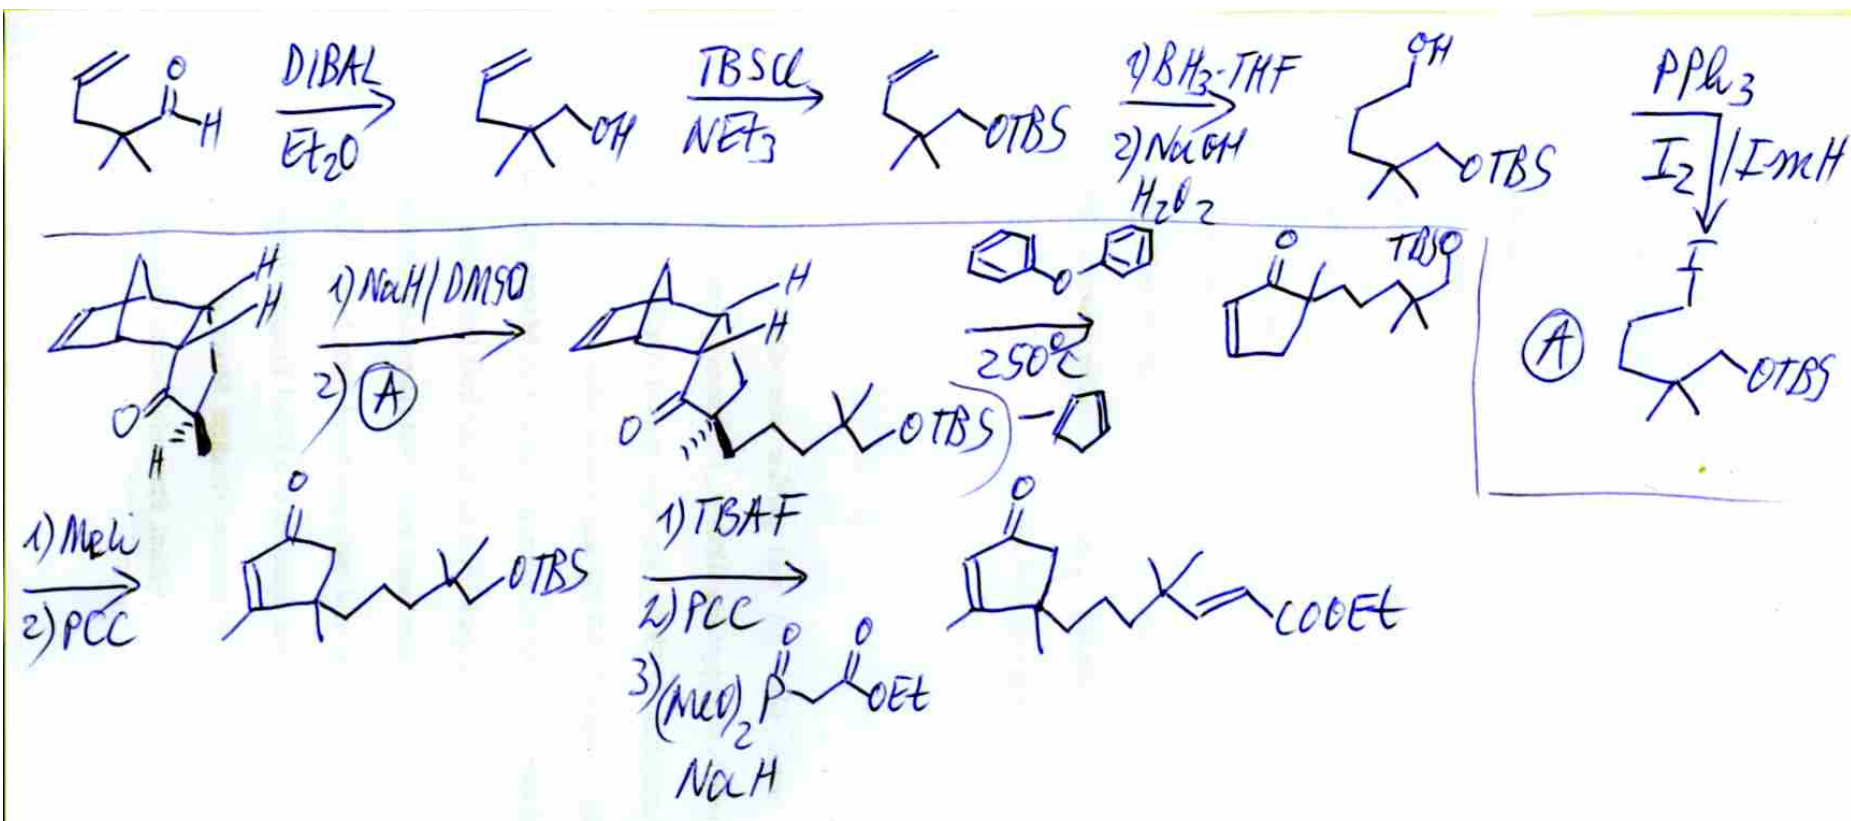 O
H
DIBAL
Et₂O
OH
TBSCl
NEt₃
OTBS
1) BH₃·THF
2) NaOH
H₂O₂
OH
OTBS
PPh₃
I₂ / ImH
H
H
O
H
1) NaH/DMSO
2) A
H
H
O
OTBS
O
250°C
O
TBSO
A
I
OTBS
1) MeLi
2) PCC
O
OTBS
1) TBAF
2) PCC
3) (MeO)₂ P O O OEt
NaH
O
COOEt